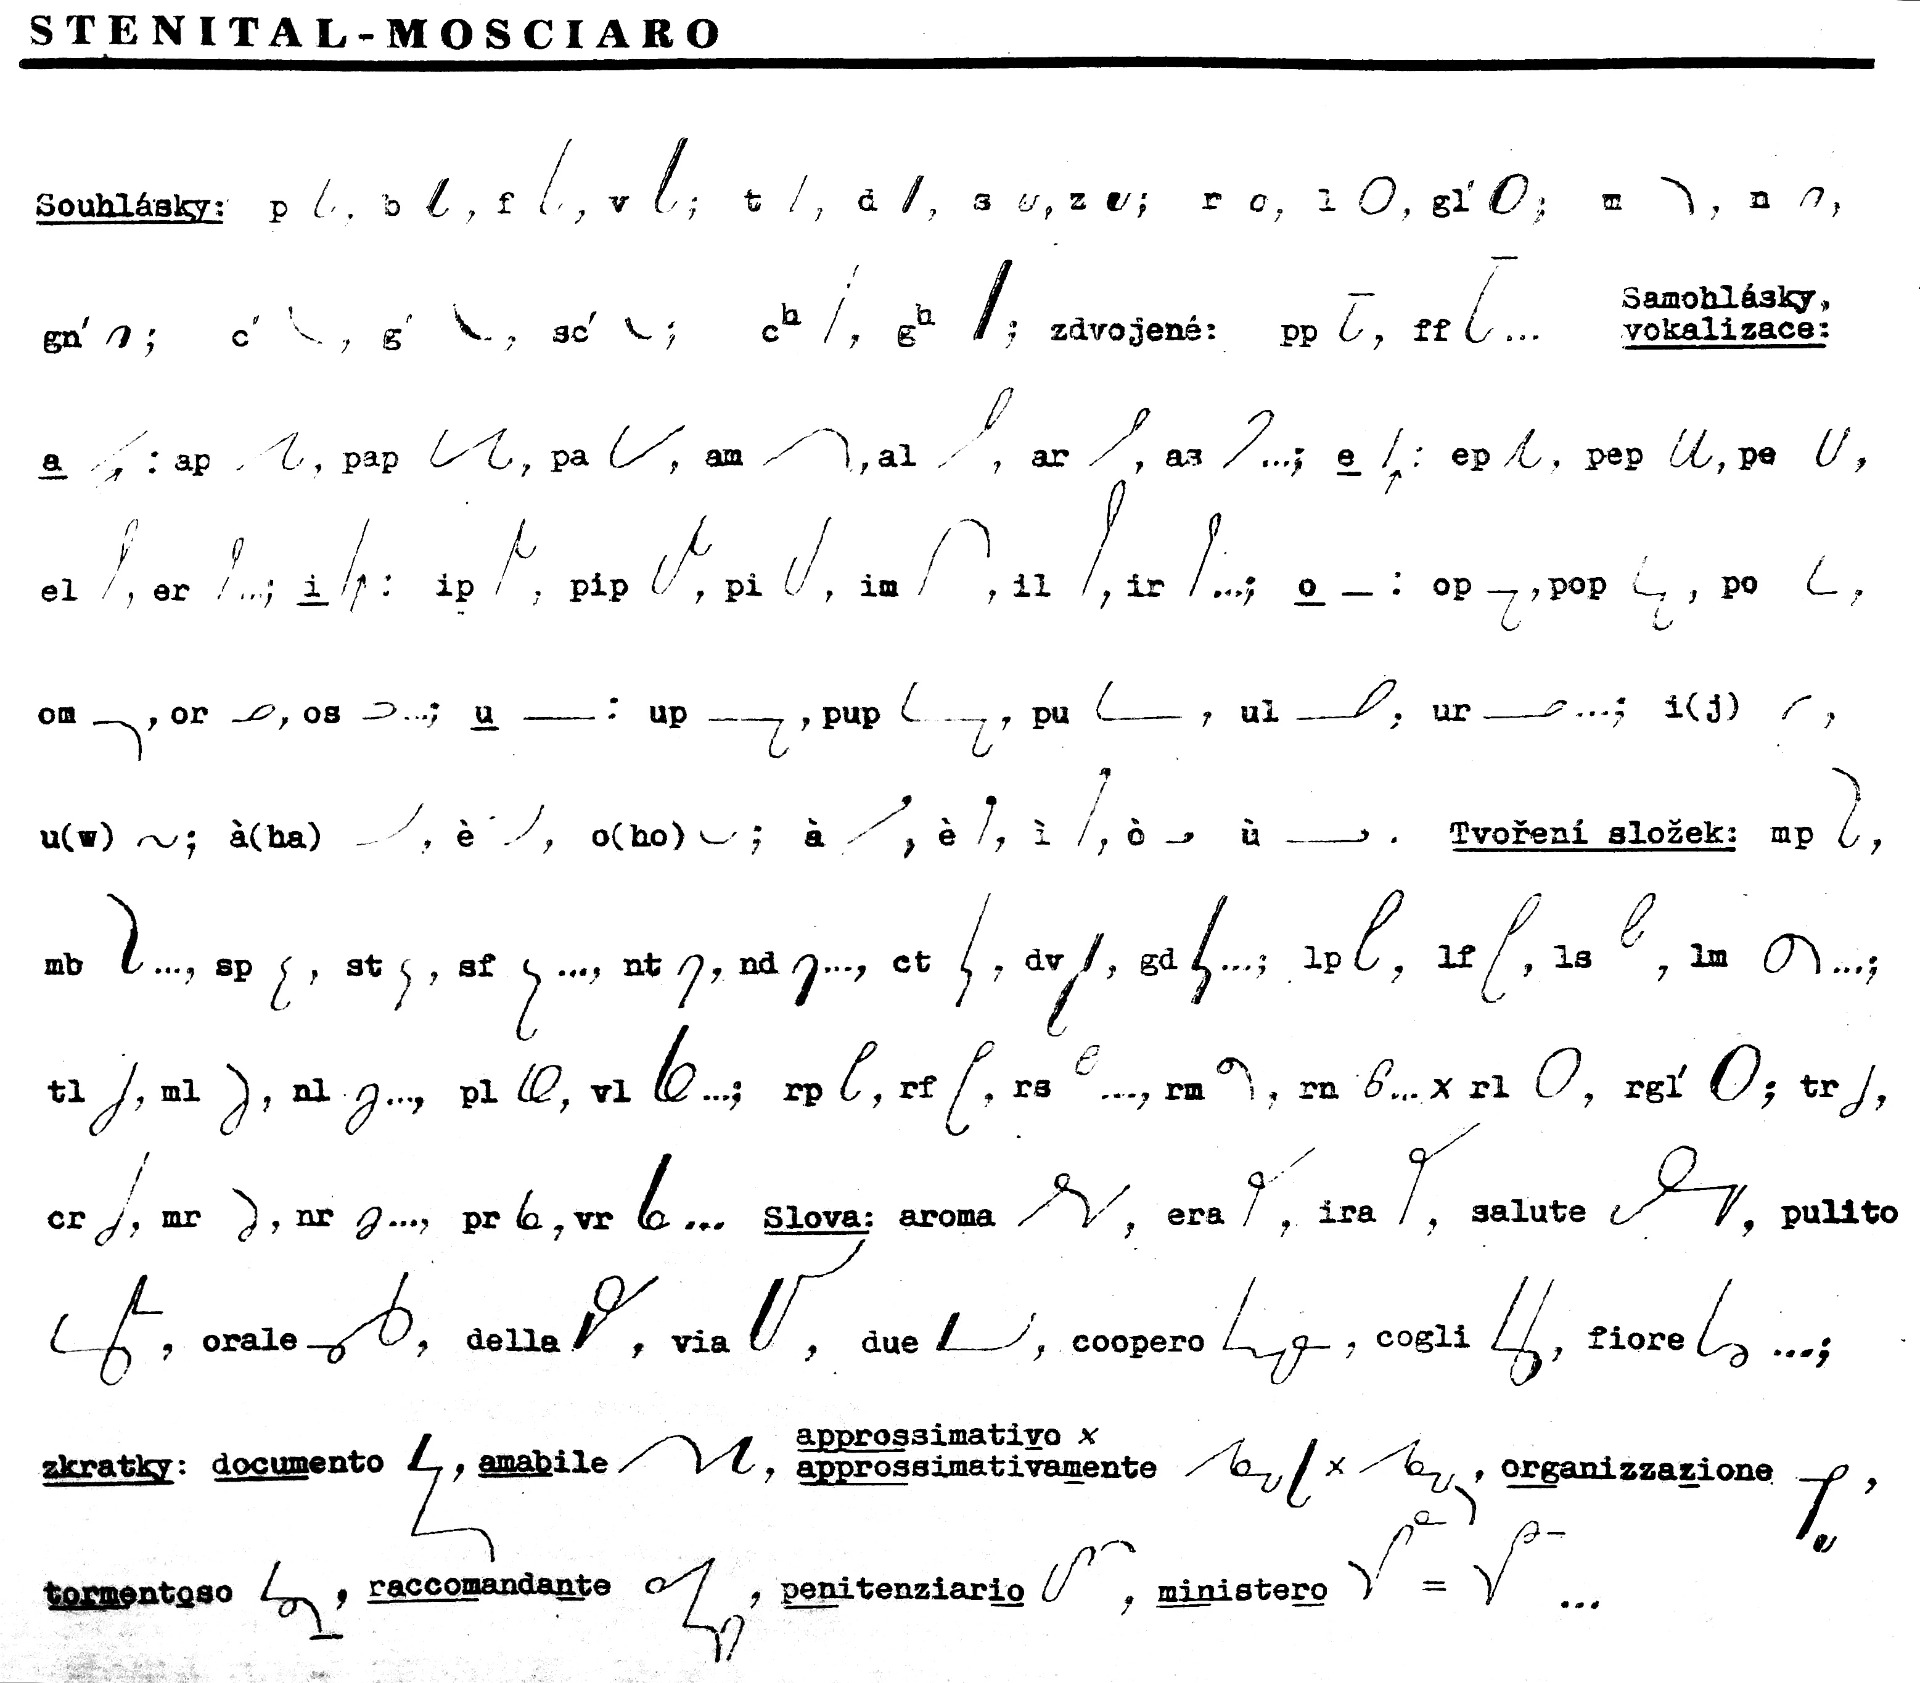 STENITAL-MOSCIARO
Souhlásky: p , b , f , v ; t , d , s , z ; r , l , gľ ; m , n ,
gn' ; c' , g' , sc' ; cʰ , gʰ ; zdvojené: pp , ff ... Samohlásky, vokalizace:
a , : ap , pap , pa , am , al , ar , as ...; e : ep , pep , pe ,
el , er ...; i : ip , pip , pi , im , il , ir ...; o — : op , pop , po ,
om , or , os ...; u — : up , pup , pu , ul , ur ...; i(j) ,
u(w) ; à(ha) , è , o(ho) ; à , è , ì , ò ù . Tvoření složek: mp ,
mb ..., sp , st , sf ..., nt , nd ..., ct , dv , gd ...; lp , lf , ls , lm ...;
tl , ml , nl ..., pl , vl ...; rp , rf , rs ..., rm , rn ... x rl , rgľ ; tr ,
cr , mr , nr ..., pr , vr ... Slova: aroma , era , ira , salute , pulito
, orale , della , via , due , coopero , cogli , fiore ...;
zkratky: documento , amabile , approssimativo x approssimativamente x , organizzazione ,
tormentoso , raccomandante , penitenziario , ministero = ...